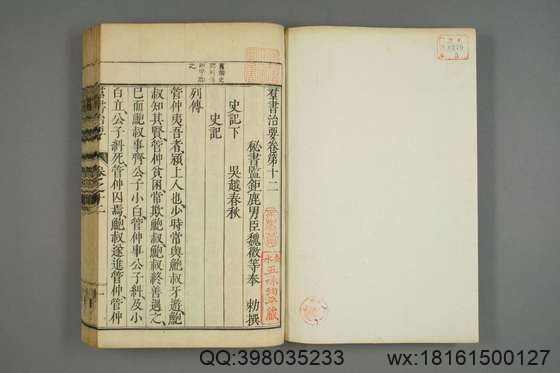 羣書治要卷第十二
秘書監鉅鹿男臣魏徵等奉 勅撰
史記下 吳越春秋
史記
列傳
管仲夷吾者、潁上人也、少時常與鮑叔牙遊、鮑
叔知其賢、管仲貧困、常欺鮑叔、鮑叔終善遇之、
已而鮑叔事齊公子小白、管仲事公子糾、及小
白立、公子糾死、管仲囚焉、鮑叔遂進管仲、管仲
QQ:398035233
wx:18161500127